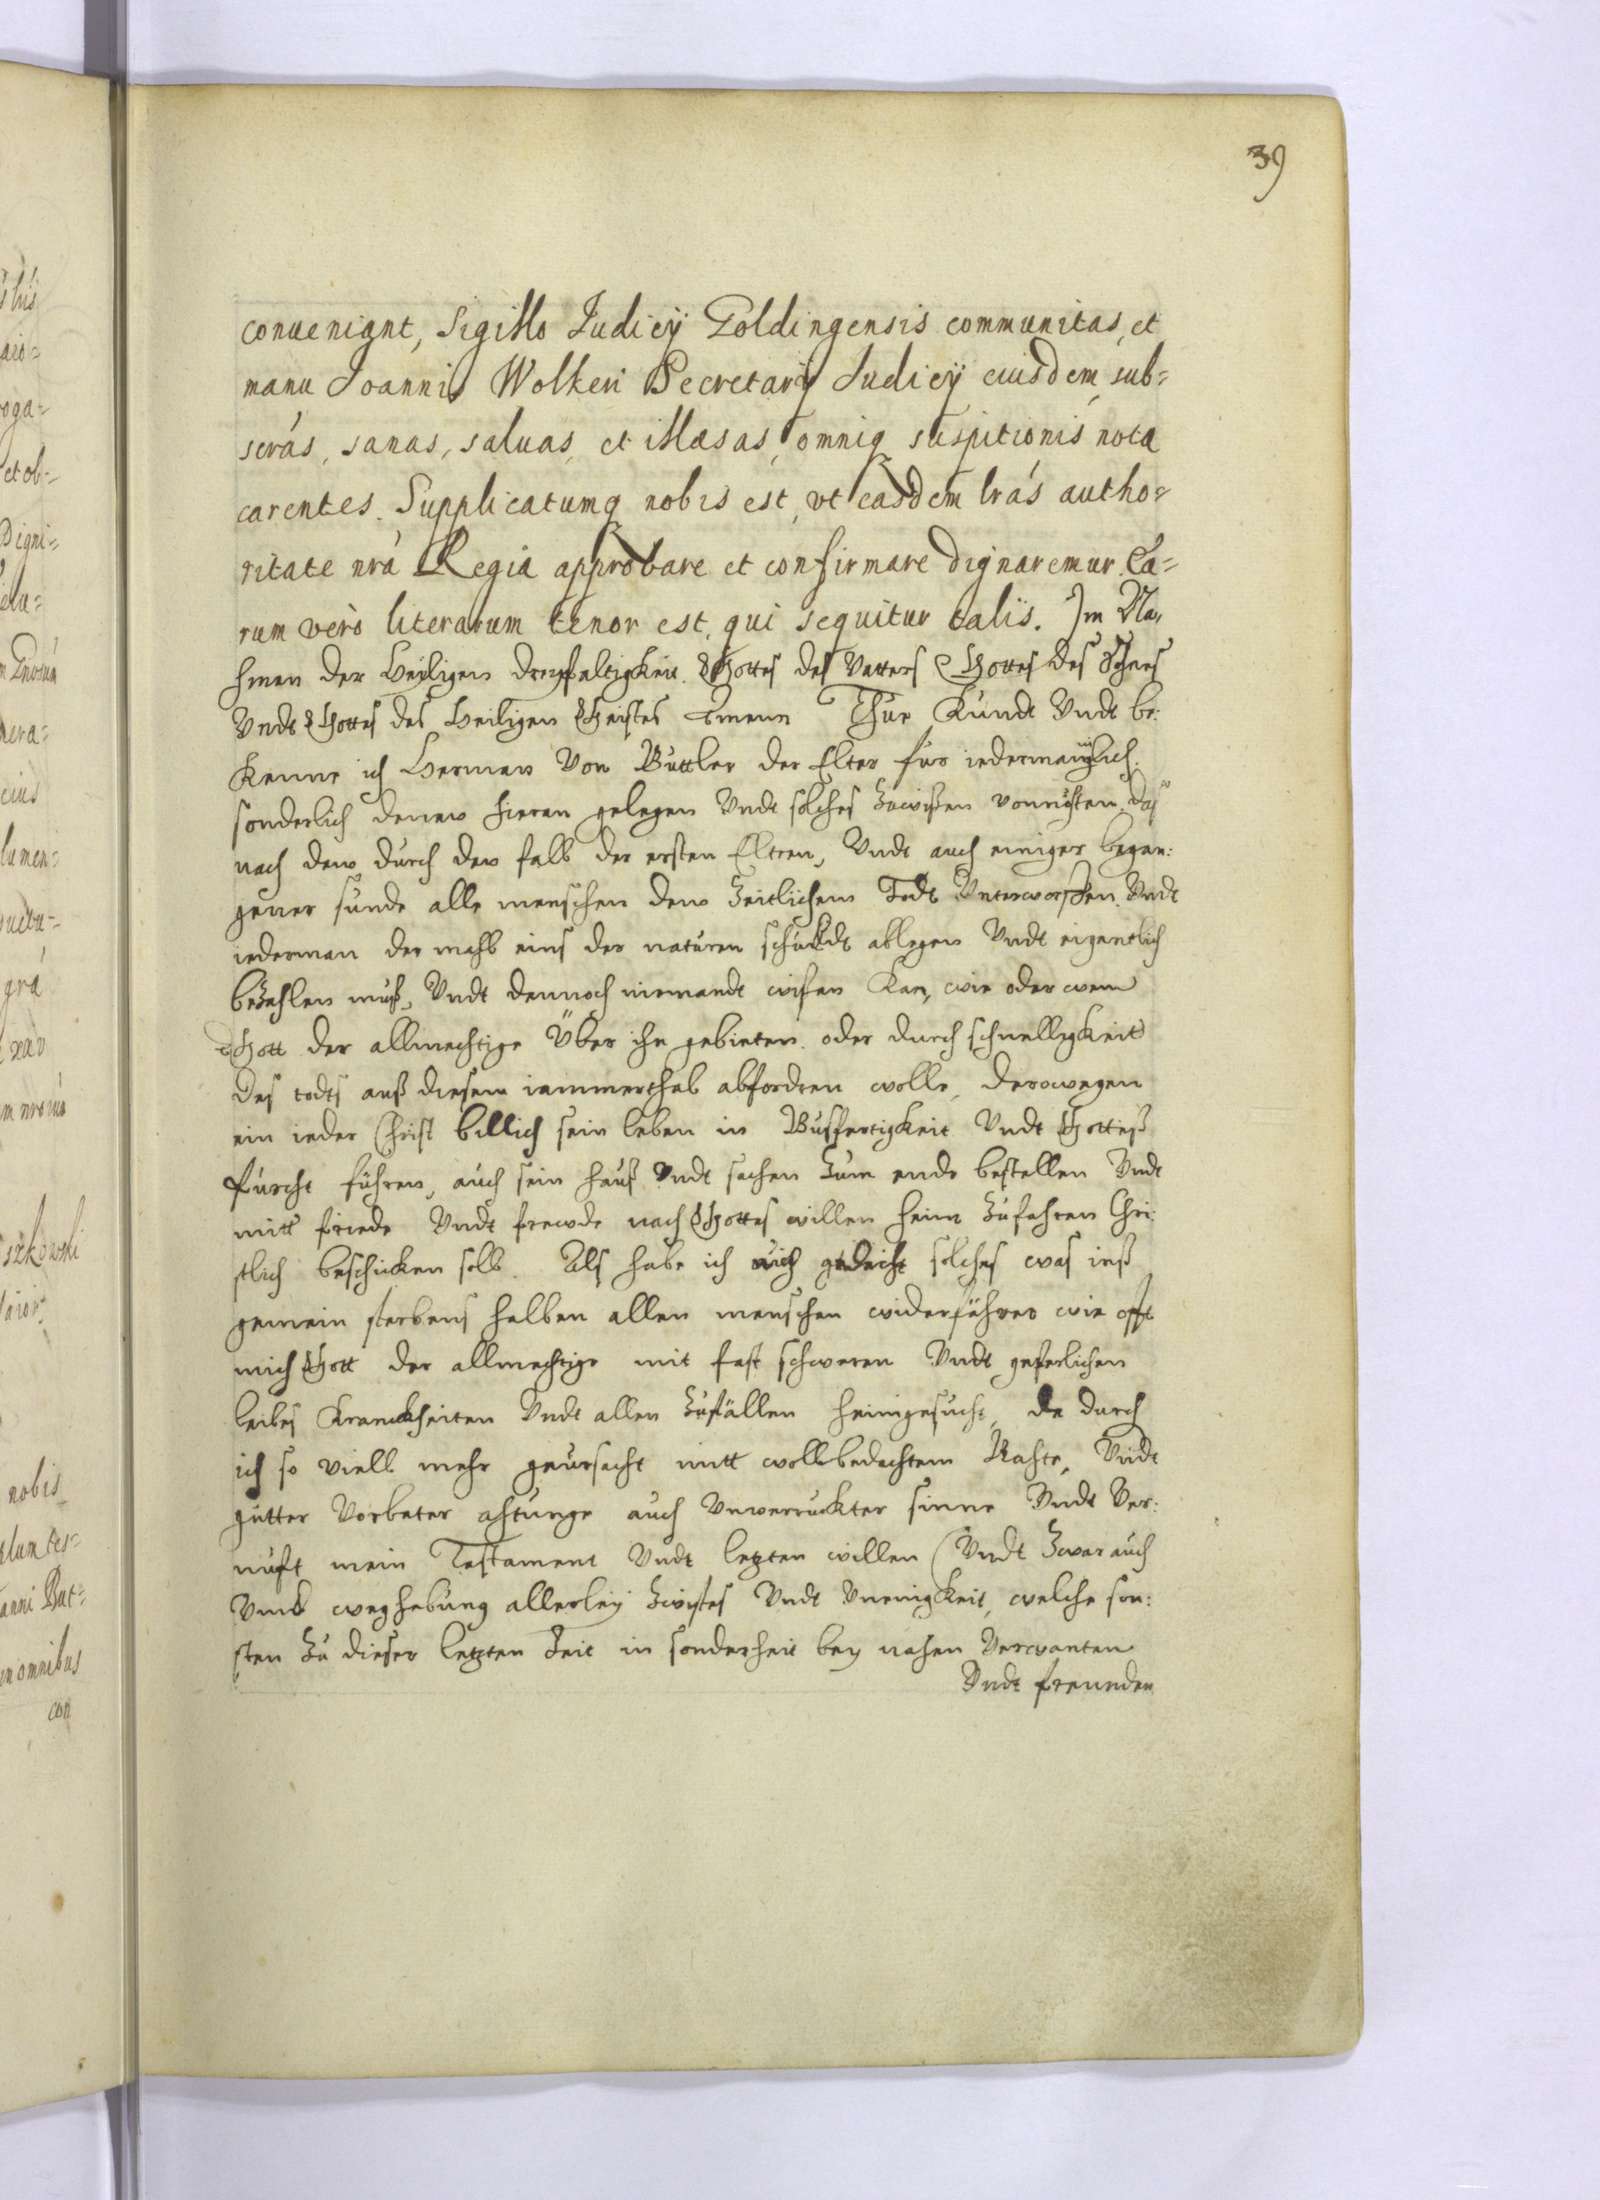 39
conueniant, Sigillo Judicÿ Goldingensis communitas, et
manu Joannis Wolkeri Secretarÿ Judicÿ eiusdem sub=
scrás, sanas, saluas, et illæsas, omniq suspitionis nota
carentes. Supplicatumq nobis est, vt easdem lrás autho=
ritate nrá Regia approbare et confirmare dignaremur. Ea=
rum verò literarum tenor est, qui sequitur talis. Im Na,
hmen der Heyligen dreyfaltigkeit. Gottes des Vatters Gottes des Sohnes
Vndt Gottes des Heiligen Geistes Amenn Thue Kundt Vndt be:
Kenne ich Herman Von Buttler der Elter fur iedermanniglich.
sonderlich denen hieran gelegen Vndt solches Zuwißen vonnöhten, das
nach dem durch den fall der ersten Eltren, Vndt auch einiger began:
gener sunde alle menschen dem Zeitlichem Todt Vnterworffen. Vndt
iederman der mahl eins der naturen schuldt ablegen Vndt eigentlich
beZahlen muß, Vndt dennoch niemandt wisen Kan, wie oder wenn
Gott der allmechtige Über ihn gebieten. oder durch schnelligkeit
des todts auß diesem iammerthal abfordren wolle, derowegen
ein ieder Christ billich sein leben in Busfertigkeit Vndt Gotteß
furcht führen, auch sein hauß Vndt sachen Zum ende bestellen Vndt
mitt friede Vndt frewde nach Gottes willen heim Zufahren Chri:
stlich beschicken soll. Als habe ich mich gedacht solches was inß
gemein sterbens halben allen menschen widerfähret wie offt
mich Gott der allmechtige mit fast schweren Vndt geferlichen
leibes Kranckheiten Vndt allen Zufällen heimgesucht, da durch
ich so viell mehr geursacht mitt wollbedachtem Rahte, Vndt
gutter Vorbetrachtunge auch Vnverruckter sinne Vndt Ver:
nuft mein Testament Vndt letzten willen (Vndt Zwar auch
Vmb weghebung allerleÿ Zwistes Vndt Vneinigkeit, welche son:
sten Zu dieser letzten Zeit in sonderheit bey nahen Verwanten
Vndt freunden